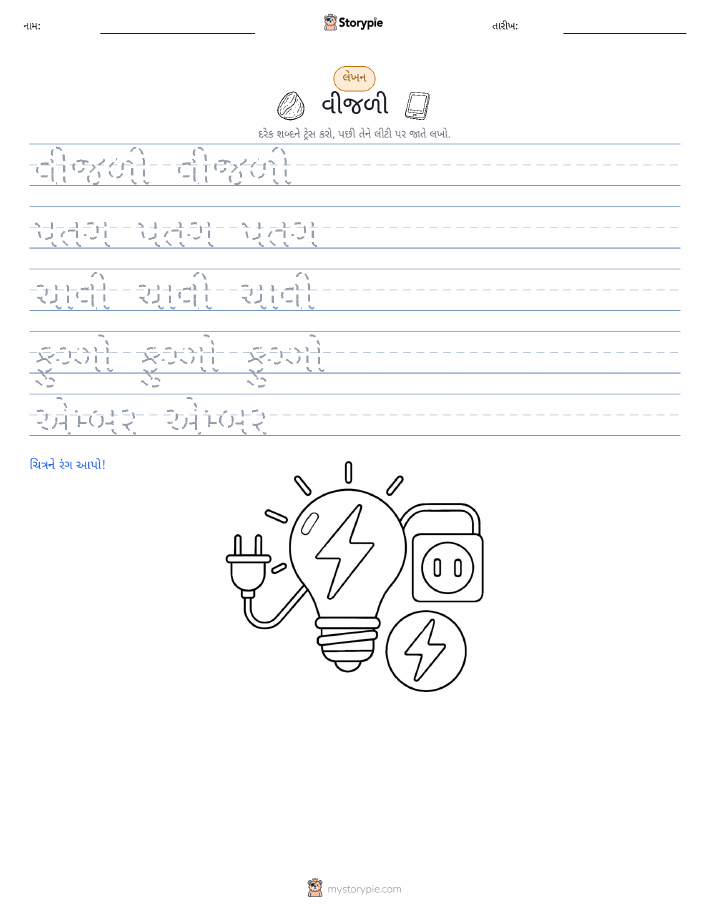 નામ: Storypie તારીખ:
લેખન
વીજળી
દરેક શબ્દને ટ્રેસ કરો, પછી તેને લીટી પર જાતે લખો.
વીજળી વીજળી
પતંગ પતંગ પતંગ
ચાવી ચાવી ચાવી
ફુગ્ગો ફુગ્ગો ફુગ્ગો
એમ્બર એમ્બર
ચિત્રને રંગ આપો!
mystorypie.com